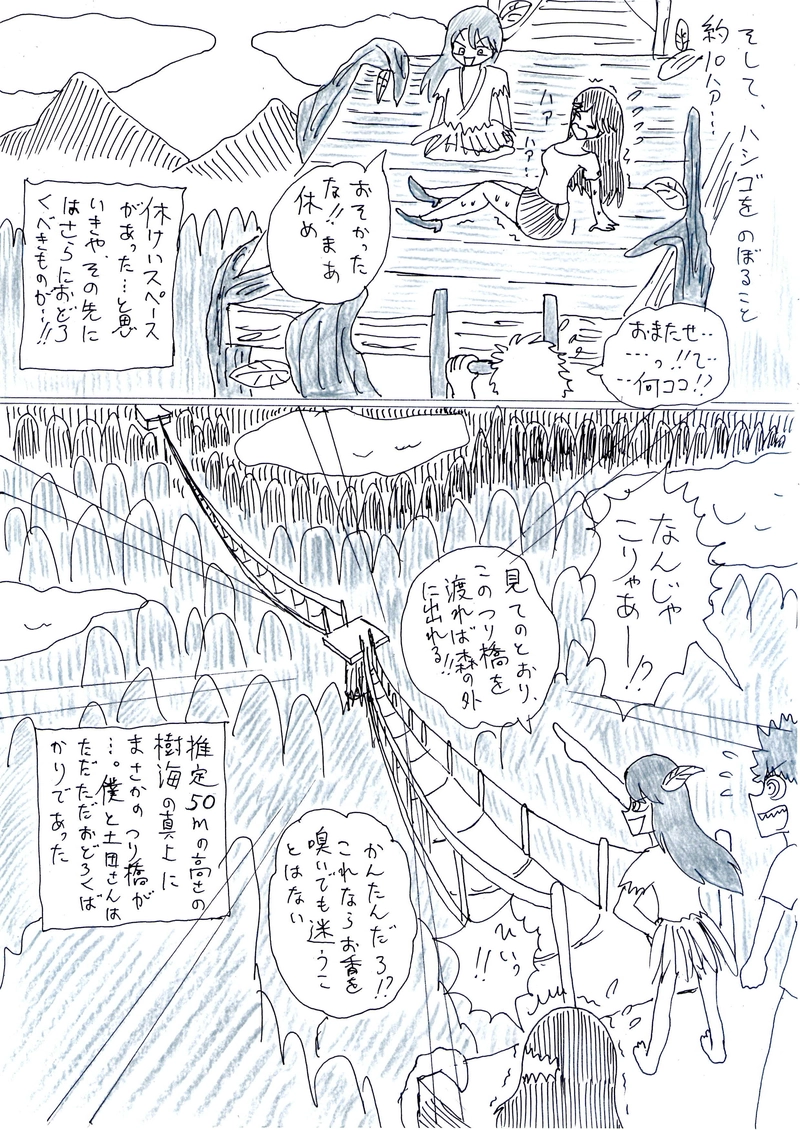 そして、ハシゴをのぼること
約10分…
ハァ
ハァ
ァ…
おそかった
な!!まあ
休め
おまたせ…
…っ!!て…
…何ココ!?
休けいスペース
があった…と思
いきや、その先に
はさらにおどろ
くべきものが…!!
なんじゃ
こりゃあー!?
見てのとおり、
このつり橋を
渡れば森の外
に出れる!!
推定50mの高さの
樹海の真上に
まさかのつり橋が
…。僕と土田さんは
ただただおどろくば
かりであった
かんたんだろ!?
これならお香を
嗅いでも迷うこ
とはない
ひいっ
!!